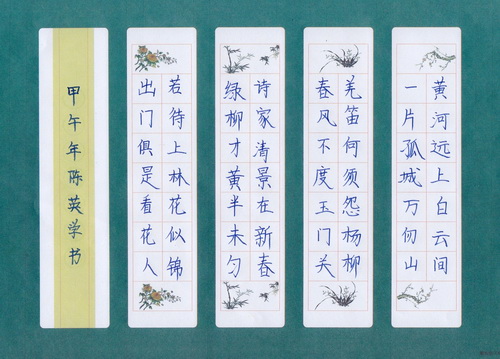 黄河远上白云间
一片孤城万仞山
羌笛何须怨杨柳
春风不度玉门关
诗家清景在新春
绿柳才黄半未匀
若待上林花似锦
出门俱是看花人
甲午年陈英学书